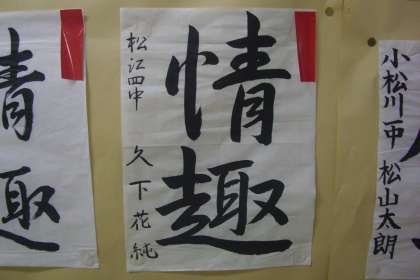 情趣
松江四中 久下花純
情趣
小松川一中 松山太朗